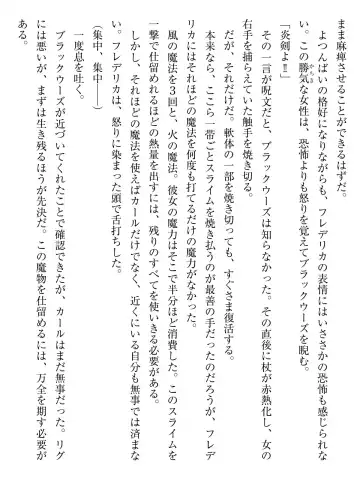 まま麻痺させることができるはずだ。
よつんばいの格好になりながらも、フレデリカの表情にはいささかの恐怖も感じられな
い。この勝気な女性は、恐怖よりも怒りを覚えてブラックウーズを睨む。
「炎剣よ!!」
その一言が呪文だと、ブラックウーズは知らなかった。その直後に杖が赤熱化し、女の
右手を捕らえていた触手を焼き切る。
だが、それだけだ。軟体の一部を焼き切っても、すぐさま復活する。
本来なら、ここら一帯ごとスライムを焼き払うのが最善の手だったのだろうが、フレデ
リカにはそれほどの魔法を何度も打てるだけの魔力がない。
風の魔法を３回と、火の魔法。彼女の魔力はそこで半分ほど消費した。このスライムを
一撃で仕留めれるほどの熱量を出すには、残りのすべてを使いきる必要がある。
しかし、それほどの魔法を使えばカールだけでなく、近くにいる自分も無事では済まな
い。フレデリカは、怒りに染まった頭で舌打ちした。
（集中、集中――）
一度息を吐く。
ブラックウーズが近づいてくれたことで確認できたが、カールはまだ無事だった。リグ
には悪いが、まずは生き残るほうが先決だ。この魔物を仕留めるには、万全を期す必要が
ある。